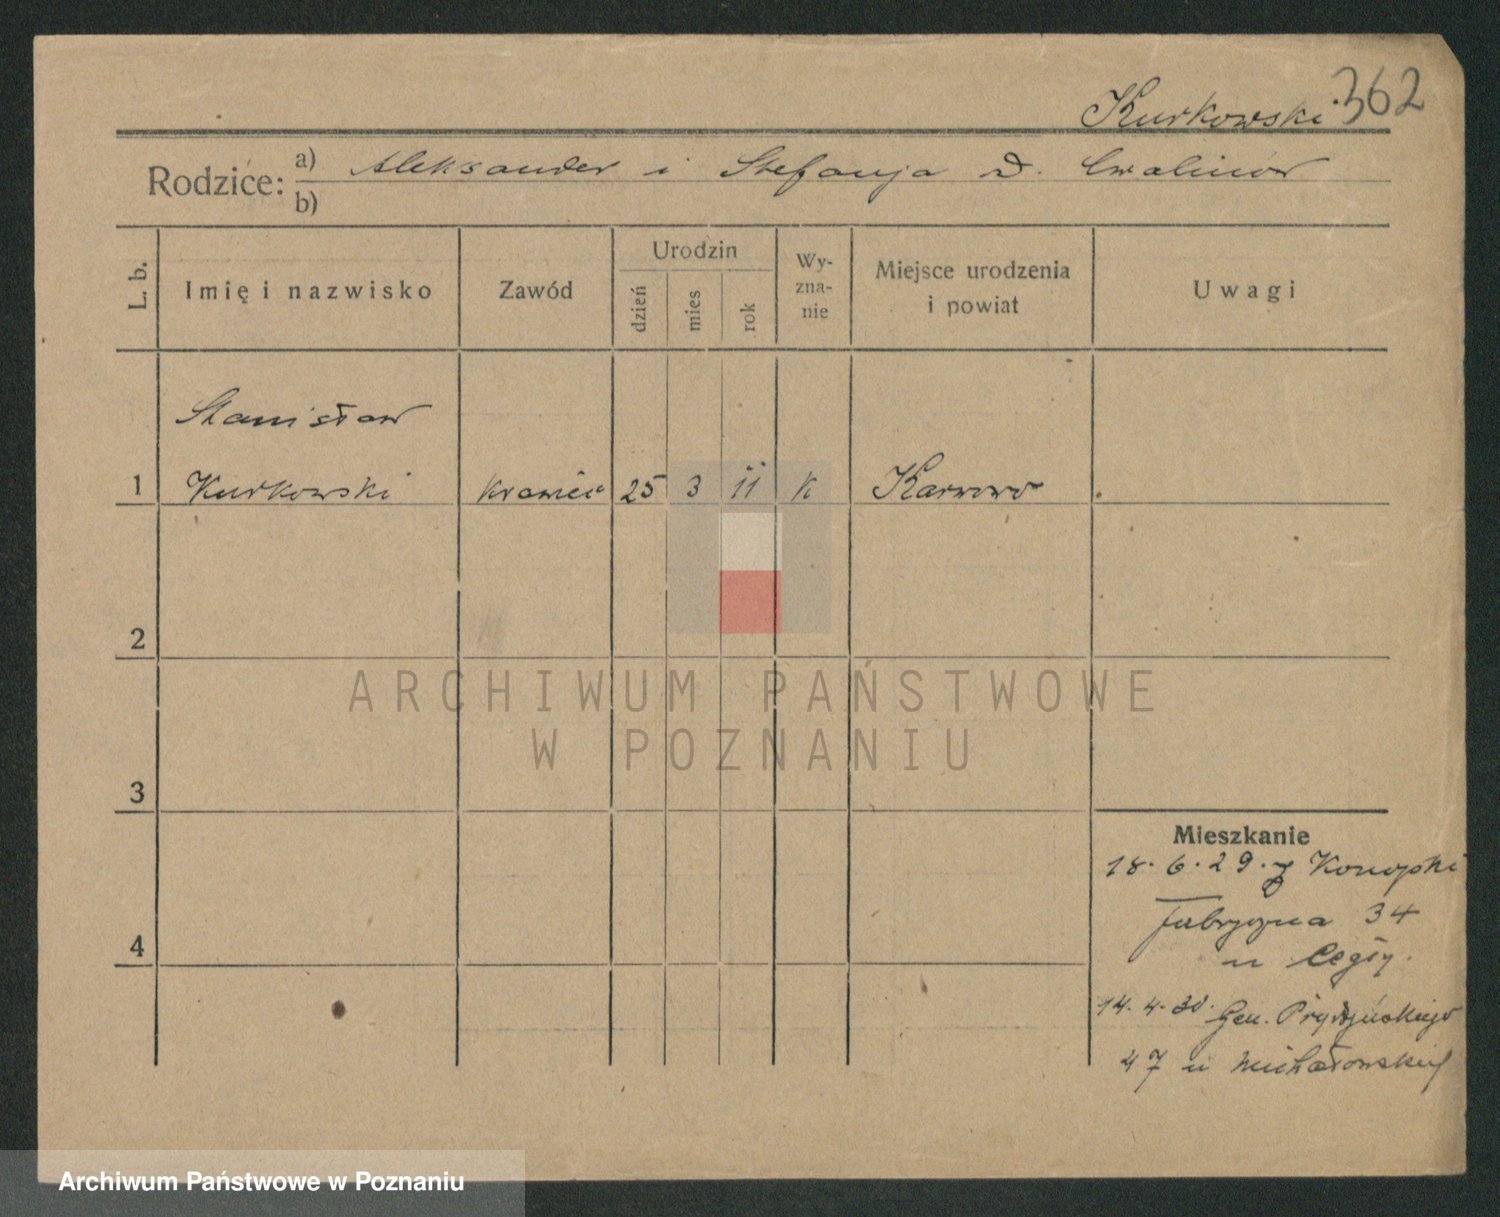 Kurkowski 362
Rodzice: a) Aleksander i Stefanja d. Cwalinów
b)
L. b. Imię i nazwisko Zawód Urodzin dzień mies rok Wyznanie Miejsce urodzenia i powiat Uwagi
Stanisław
1 Kurkowski krawiec 25 3 11 k Karwowo
2
3
4
Mieszkanie
18.6.29. z Konopki
Fabryczna 34
u
14.4.30. Gen. Prądzyńskiego
47 u Michałowskiej
ARCHIWUM PAŃSTWOWE
W POZNANIU
Archiwum Państwowe w Poznaniu